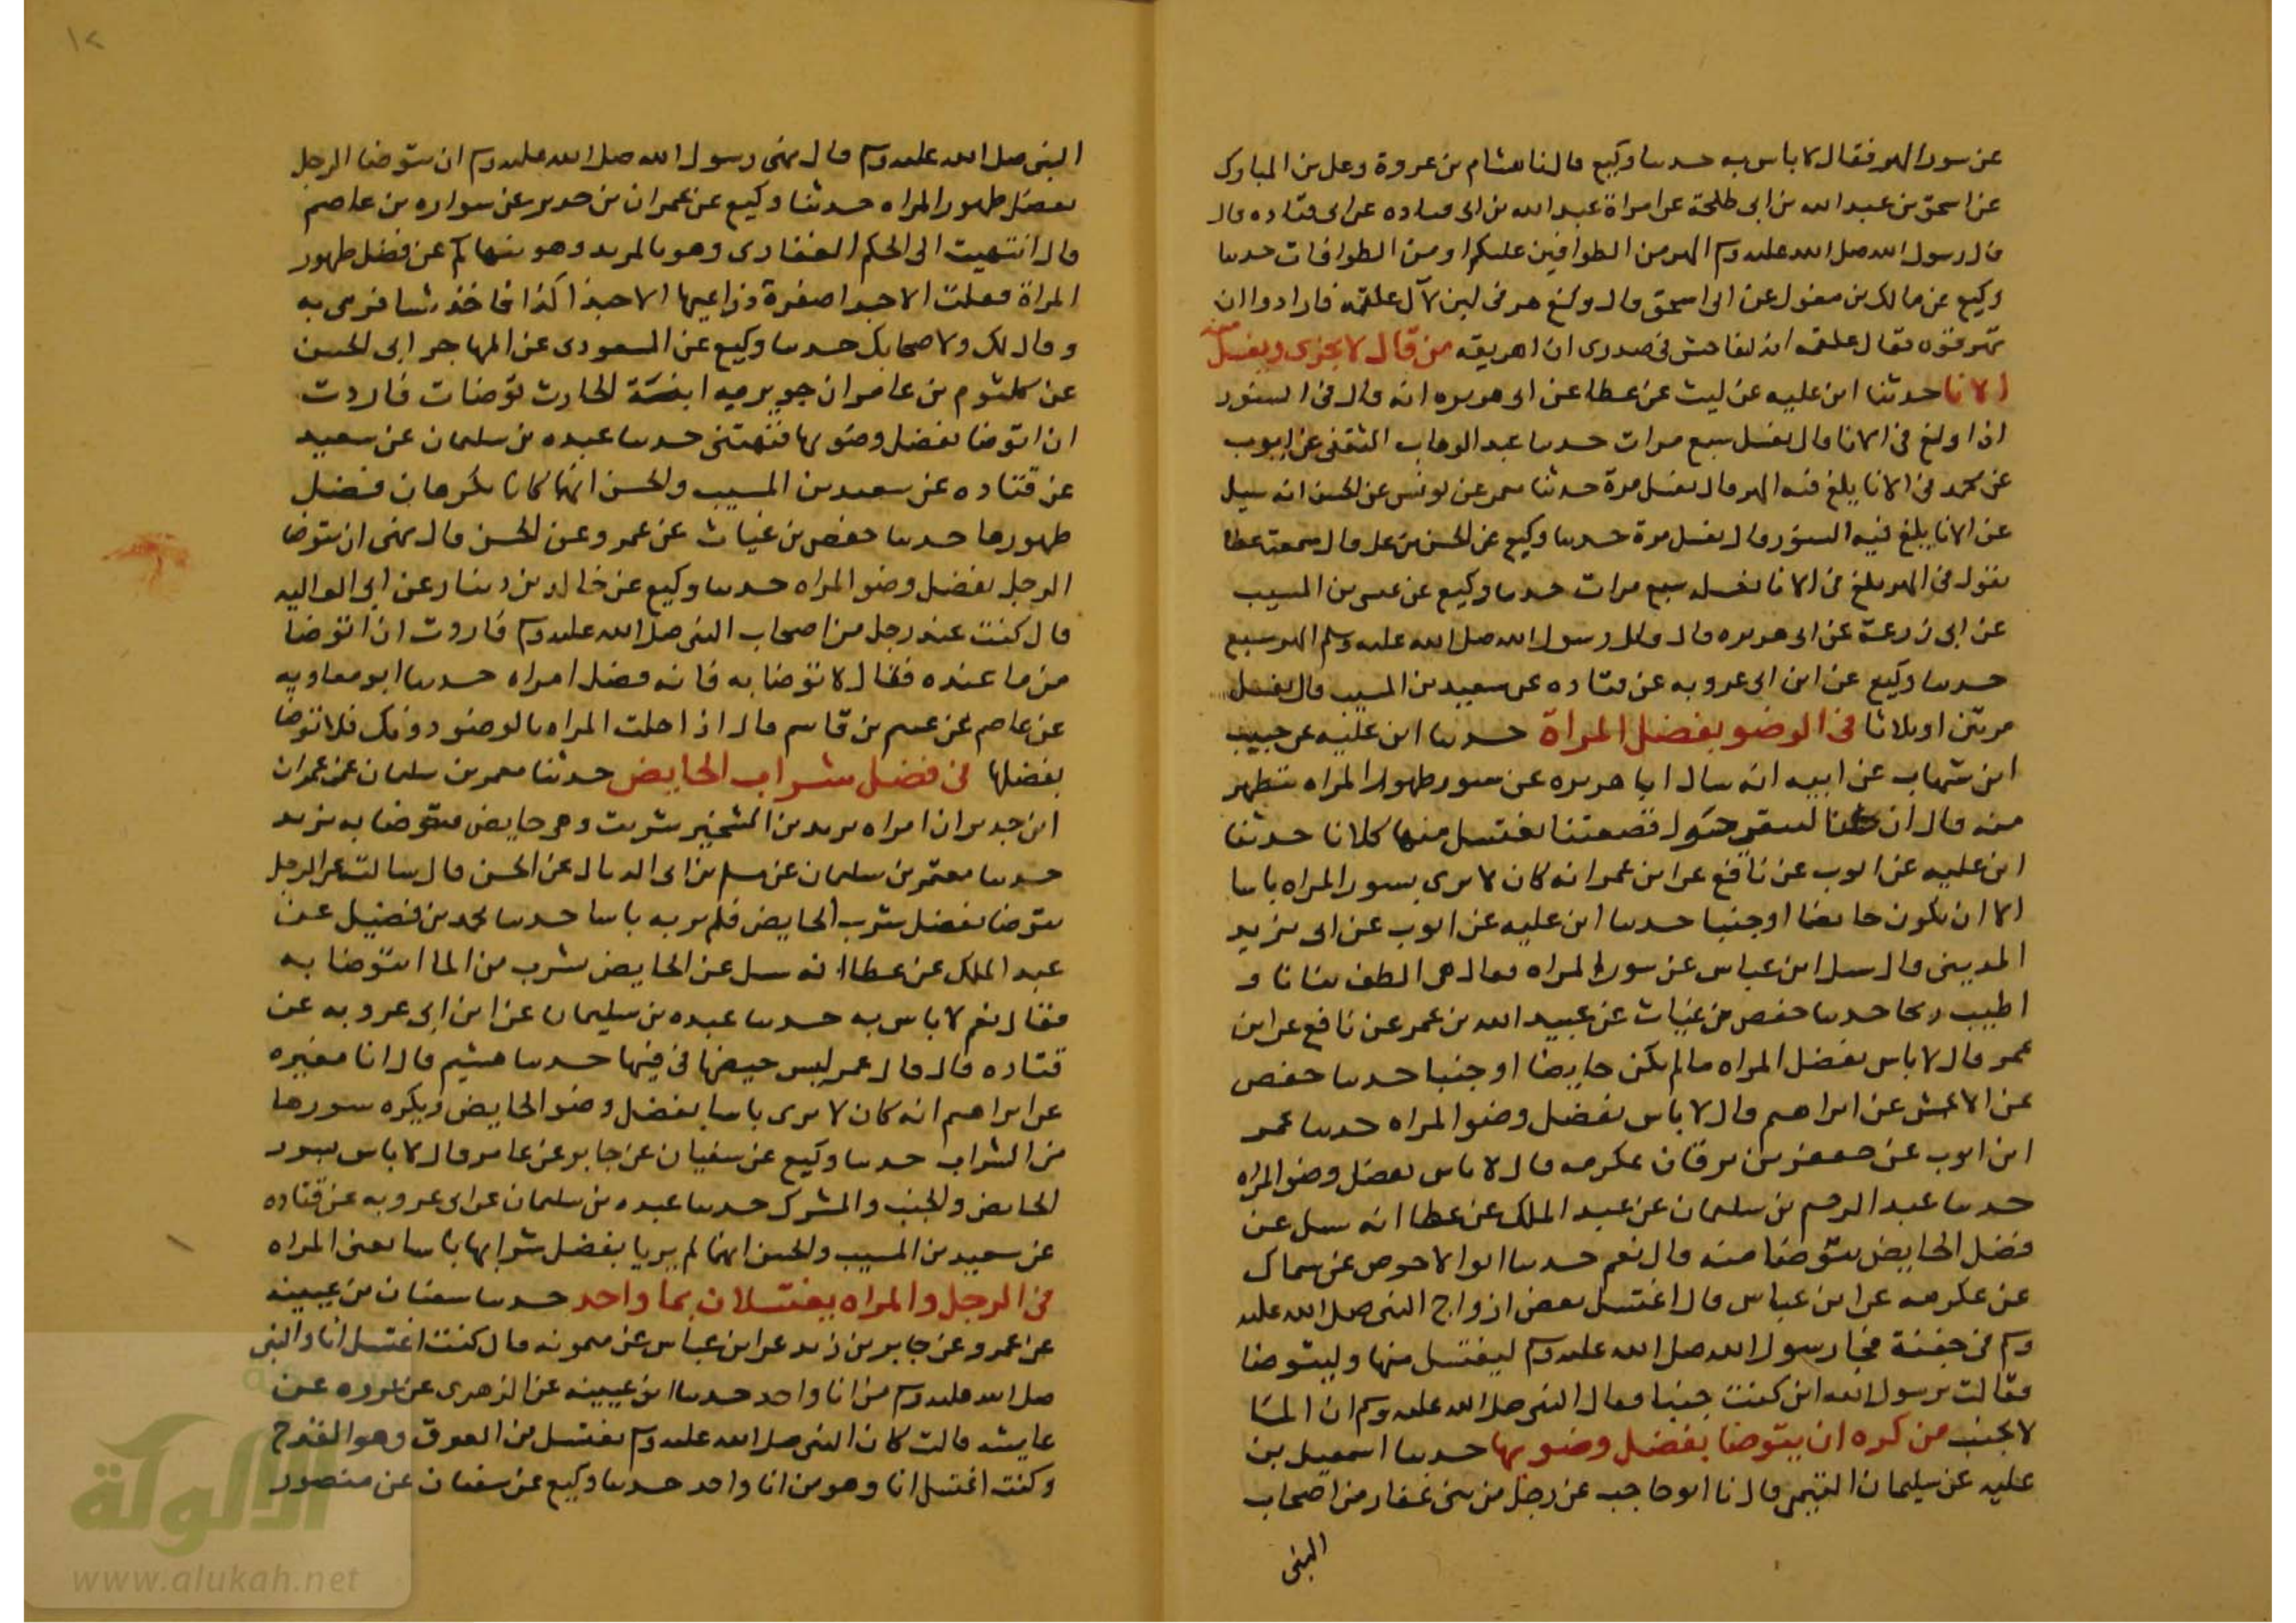 عن سور الهر فقال لا باس به حدثنا وكيع قال نا هشام بن عروة وعلي بن المبارك
عن اسحق بن عبد الله بن ابي طلحة عن امراة عبد الله بن ابي قتاده عن ابي قتاده قال
قال رسول الله صلى الله عليه وسلم الهر من الطوافين عليكم او من الطوافات حدثنا
وكيع عن مالك بن مغول عن ابي اسحق قال ولغ هر في لبن لآل علقمه فارادوا ان
يهرقوه فقال علقمه انه ليفاحش في صدري ان اهريقه من قال لا يجزي ويغسل منه
الانا حدثنا ابن عليه عن ليث عن عطا عن ابي هريره انه قال في السنور
اذا ولغ في الانا قال يغسل سبع مرات حدثنا عبد الوهاب الثقفي عن ايوب
عن محمد في الانا يلغ فيه الهر قال يغسل مرة حدثنا معمر عن يونس عن الحسن انه سيل
عن الانا يلغ فيه السنور قال يغسل مرة حدثنا وكيع عن الحسن بن علي قال سمعت عطا
يقول في الهر يلغ في الانا يغسله سبع مرات حدثنا وكيع عن عيسى بن المسيب
عن ابي زرعة عن ابي هريره قال قال رسول الله صلى الله عليه وسلم الهر سبع
حدثنا وكيع عن ابن ابي عروبه عن قتاده عن سعيد بن المسيب قال يغسل
مرتين او ثلاثا في الوضو بفضل المراة حدثنا ابن عليه عن حبيب
ابن شهاب عن ابيه انه سال ابا هريره عن سور طهور المراه تتطهر
منه قال ان كنا لننقر حول قصعتنا نغتسل منها كلانا حدثنا
ابن عليه عن ايوب عن نافع عن ابن عمر انه كان لا يرى بسور المراه باسا
الا ان تكون حائضا او جنبا حدثنا ابن عليه عن ايوب عن ابي يزيد
المديني قال سيل ابن عباس عن سور المراه فقال هي الطف بنانا و
اطيب ريحا حدثنا حفص بن غياث عن عبيد الله بن عمر عن نافع عن ابن
عمر قال لا باس بفضل المراه ما لم تكن حايضا او جنبا حدثنا حفص
عن الاعمش عن ابراهيم قال لا باس بفضل وضو المراه حدثنا عمر
ابن ايوب عن جعفر بن برقان عكرمه قال لا باس بفضل وضو المراه
حدثنا عبد الرحيم بن سليمان عن عبد الملك عن عطا انه سيل عن
فضل الحايض يتوضا منه قال نعم حدثنا ابو الاحوص عن سماك
عن عكرمه عن ابن عباس قال اغتسل بعض ازواج النبي صلى الله عليه
وسلم في جفنة فجا رسول الله صلى الله عليه وسلم ليغتسل منها وليتوضا
فقالت يرسول الله اني كنت جنبا فقال النبي صلى الله عليه وسلم ان الما
لا يجنب من كره ان يتوضا بفضل وضويها حدثنا اسمعيل بن
عليه عن سليمان التيمي قال نا ابو حاجب عن رجل من بني غفار من اصحاب
النبي
١٢
النبي صلى الله عليه وسلم قال نهى رسول الله صلى الله عليه وسلم ان يتوضا الرجل
بفضل طهور المراه حدثنا وكيع عن عمران بن حدير عن سواره بن عاصم
قال انتهيت الى الحكم الغفاري وهو بالمربد وهو ينهاكم عن فضل طهور
المراة فقلت الا حبذا صفرة ذراعيها الا حبذا كذا فاخذ شيا فرمى به
وقال لك ولاصحابك حدثنا وكيع عن المسعودي عن المهاجر ابي الحسن
عن كلثوم بن عامر ان جويريه ابنة الحارث توضات فاردت
ان اتوضا بفضل وضويها فنهتني حدثنا عبده بن سليمان عن سعيد
عن قتاده عن سعيد بن المسيب والحسن انهما كانا يكرهان فضل
طهورها حدثنا حفص بن غياث عن عمرو عن الحسن قال نهى ان يتوضا
الرجل بفضل وضو المراه حدثنا وكيع عن خالد بن دينار عن ابي العاليه
قال كنت عند رجل من اصحاب النبي صلى الله عليه وسلم فاردت ان اتوضا
من ما عنده فقال لا توضا به فانه فضل امراه حدثنا ابو معاويه
عن عاصم عن غنيم بن قاسم قال اذا خلت المراه بالوضو دونك فلا توضا
بفضلها في فضل شراب الحايض حدثنا معمر بن سليمان عن عمران
ابن حدير ان امراه يزيد بن الشخير شربت وهي حايض فتوضا به يزيد
حدثنا معتمر بن سليمان عن سلم بن ابي الذيال عن الحسن قال سالته عن الرجل
يتوضا بفضل شرب الحايض فلم ير به باسا حدثنا محمد بن فضيل عن
عبد الملك عن عطا انه سيل عن الحايض تشرب من الما ايتوضا به
فقال نعم لا باس به حدثنا عبده بن سليمان عن ابن ابي عروبه عن
قتاده قال قال عمر ليس حيضها في فيها حدثنا هشيم قال انا مغيره
عن ابراهيم انه كان لا يرى باسا بفضل وضو الحايض ويكره سورها
من الشراب حدثنا وكيع عن سفيان عن جابر عن عامر قال لا باس بسور
الحايض والجنب والمشرك حدثنا عبده بن سليمان عن ابي عروبه عن قتاده
عن سعيد بن المسيب والحسن انهما لم يريا بفضل شرابها باسا يعني المراه
في الرجل والمراه يغتسلان بما واحد حدثنا سفيان بن عيينه
عن عمرو عن جابر بن زيد عن ابن عباس عن ميمونه قال كنت اغتسل انا والنبي
صلى الله عليه وسلم من انا واحد حدثنا ابن عيينه عن الزهري عن عروه عن
عايشه قالت كان النبي صلى الله عليه وسلم يغتسل من الفرق وهو القدح
وكنت اغتسل انا وهو من انا واحد حدثنا وكيع عن سفيان عن منصور
الألوكة
www.alukah.net